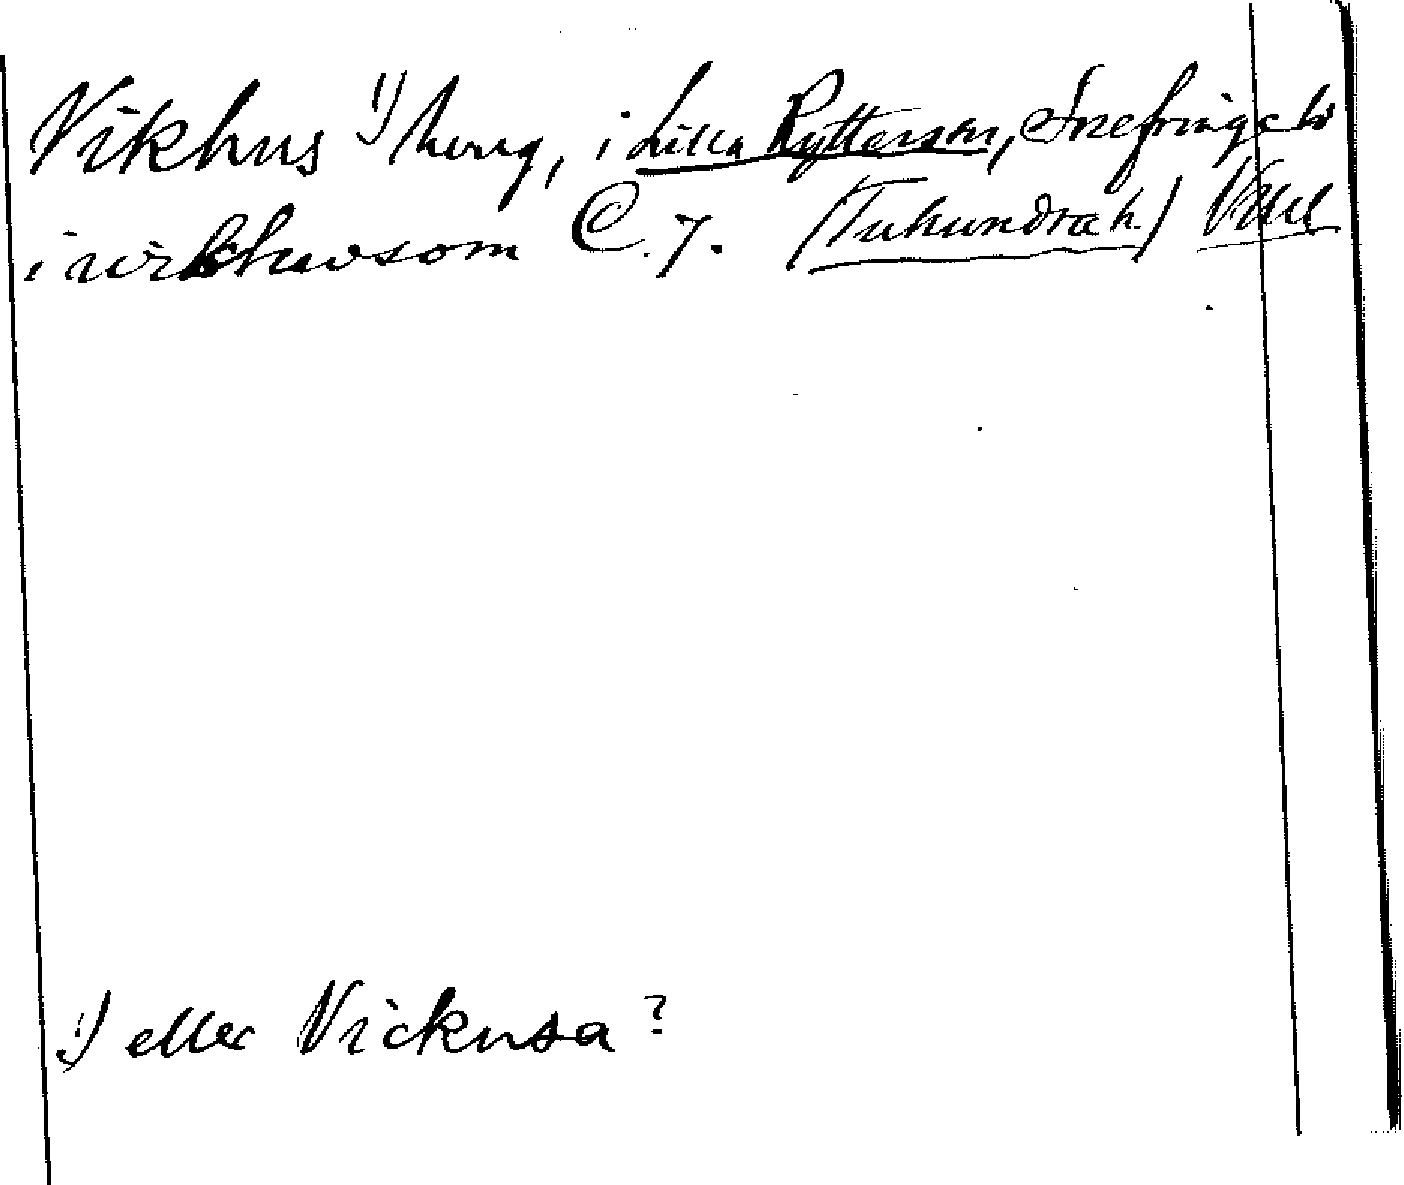 Vikhus 1) herg, i Lilla Rytterson, Snefringe hd
i wikhwsom C. 7. (Tuhundra h.) Vstml
1) eller Vickusa?